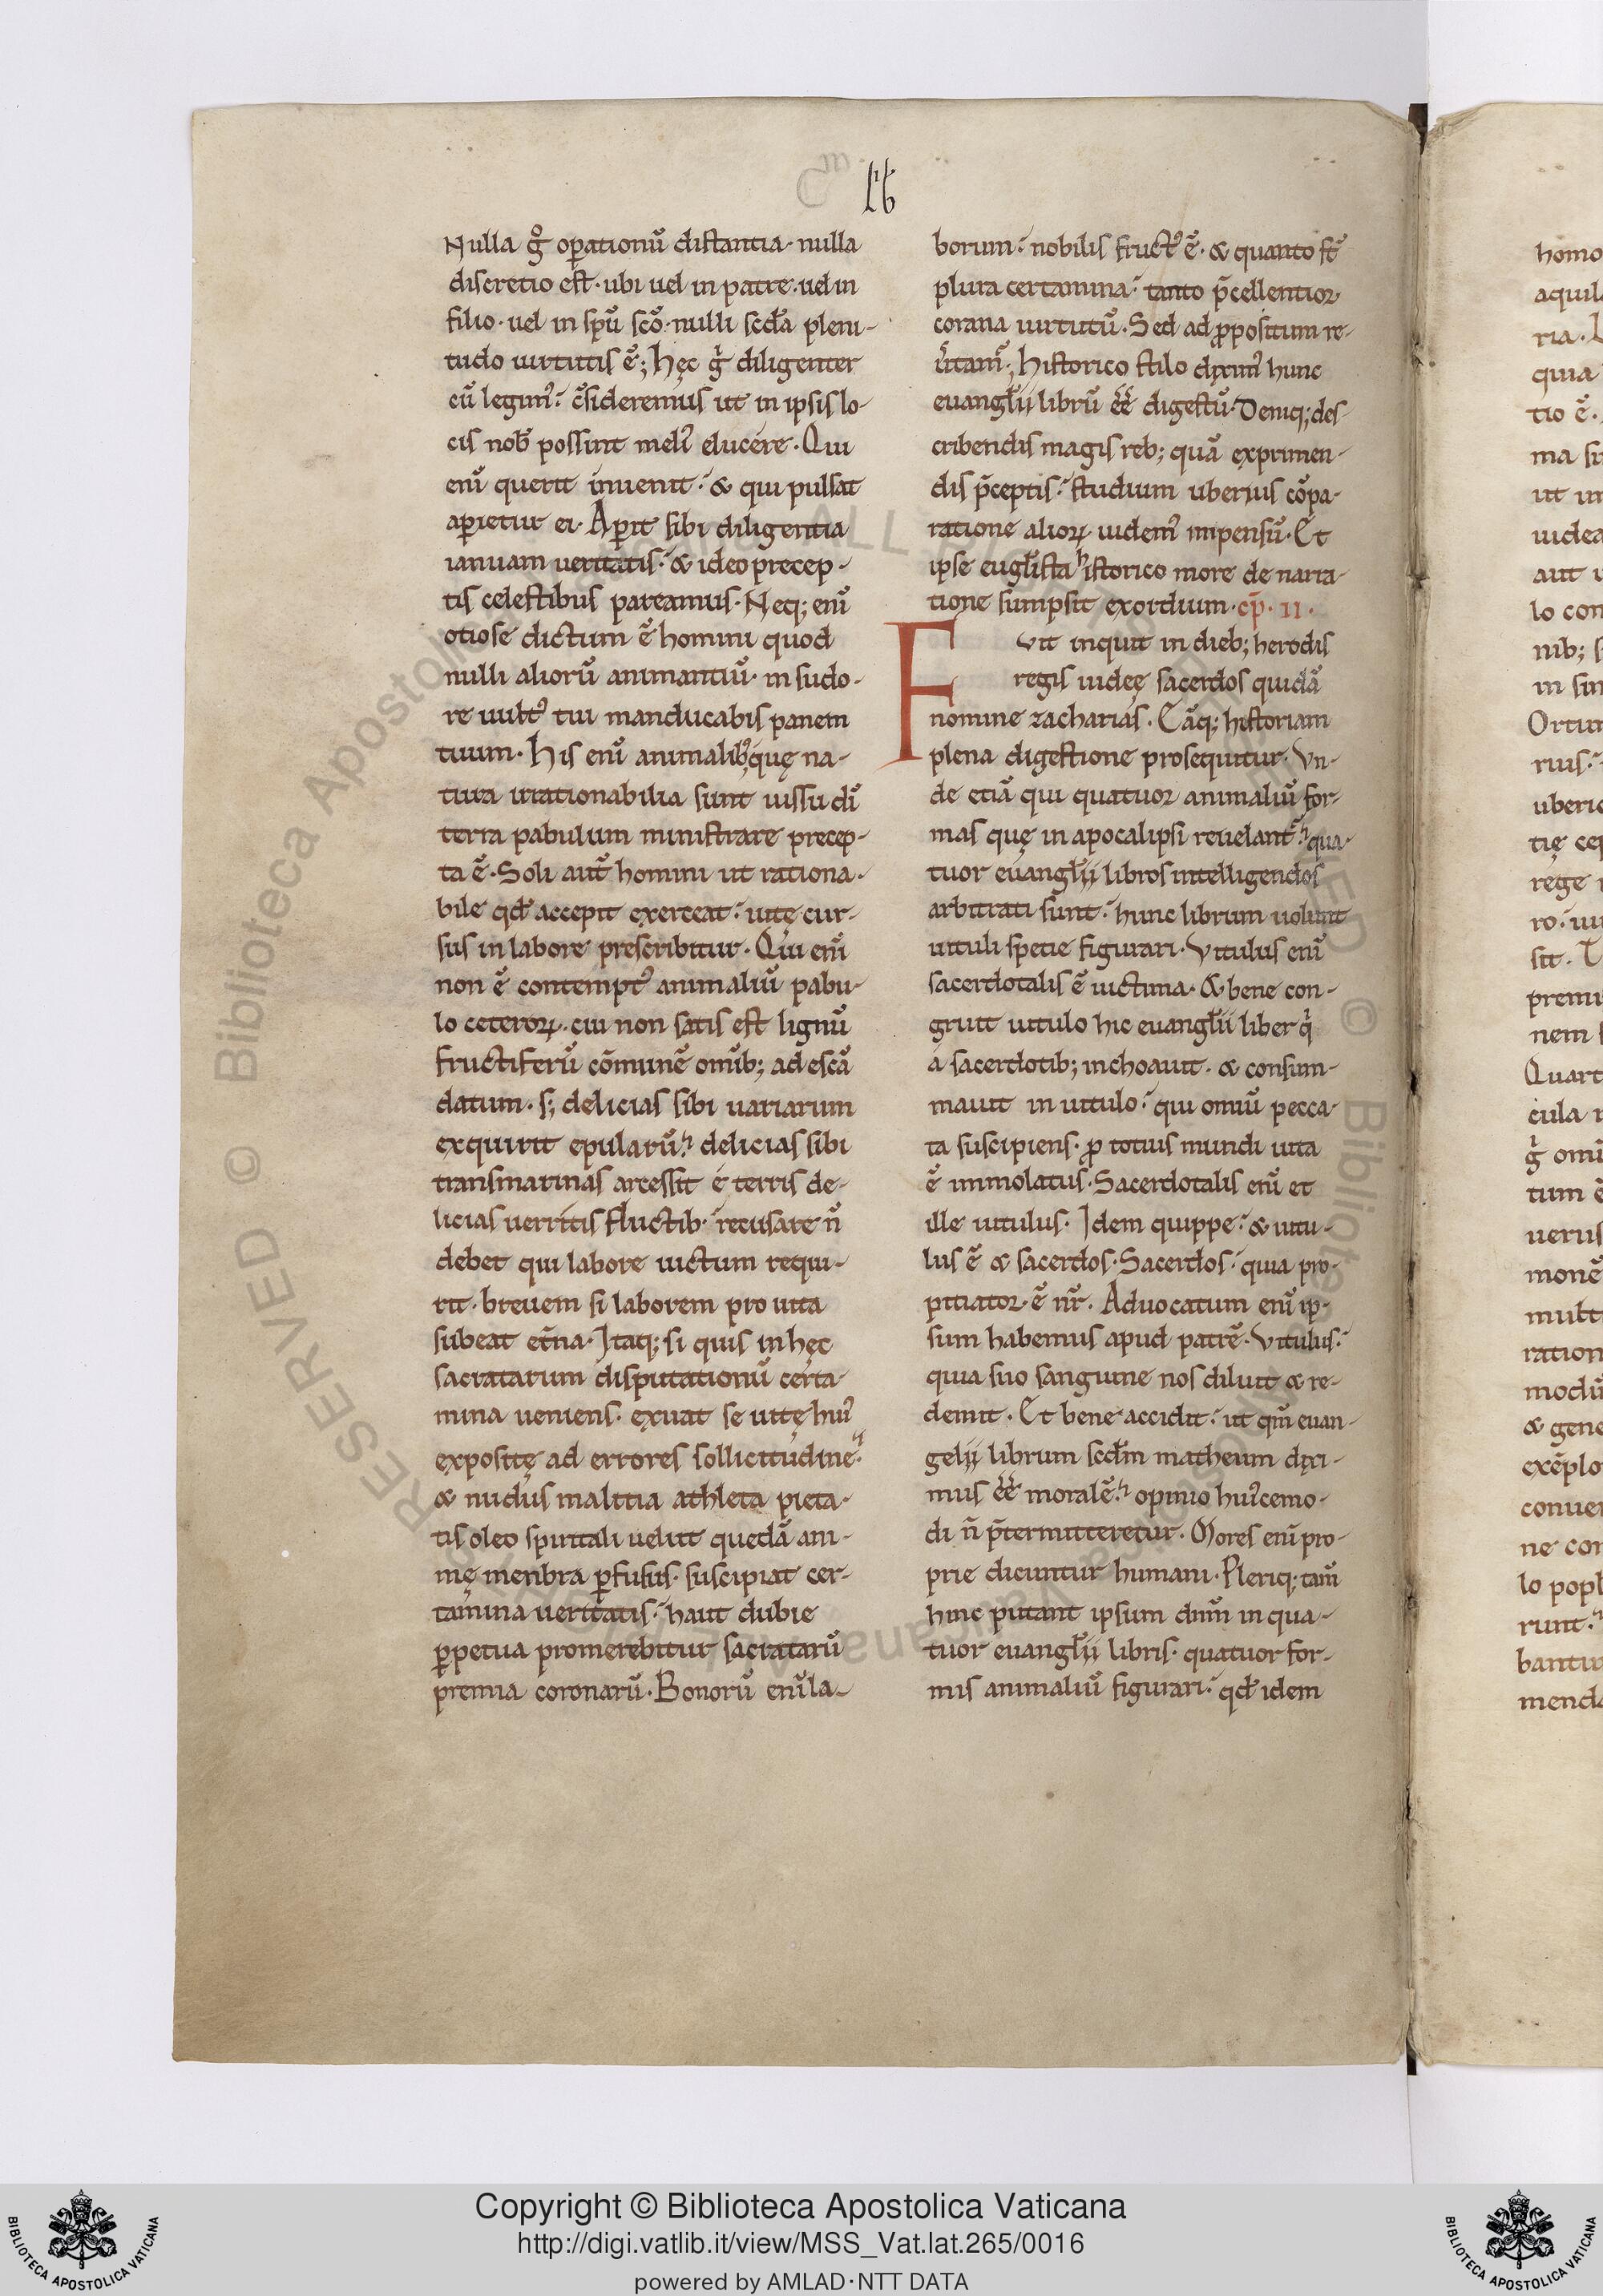 Lib
Nulla gͦ op̲ationū distantia· nulla
discretio est· ubi uel in patre· uel in
filio· uel in spū scō· nulli scd̄a pleni-
tudo uirtutis ē; hęc gͥ diligenter
cū legim᾽: c̄sideremus ut in ipsis lo-
cis nob̄ possint meli᾽ elucere· Qui
enī querit inuenit: & qui pulsat
ap̲ietur ei· Ap̲it sibi diligentia
ianuam ueritatis: & ideo precep-
tis celestibus pareamus· Neq; enī
otiose dictum ē homini quod
nulli aliorū animantiū· in sudo-
re uult᾽ tui manducabis panem
tuum· His enī animalib᾽; quę na-
tura irrationabilia sunt iussu dī
terra pabulum ministrare precep-
ta ē· Soli aut̄ homini ut rationa-
bile qd̄ accepit exerceat: uitę cur-
sus in labore prescribitur· Qui enī
non ē contempt᾽ animaliū pabu-
lo ceteroꝝ· cui non satis est lignū
fructiferū cōmunē omīb; ad escā
datum· s; delicias sibi uariarum
exquirit epularū: delicias sibi
transmarinas arcessit é terris de-
licias uerritis fluctib· recusare n̄
debet qui labore uictum requi-
rit· breuem si laborem pro uita
subeat et̄na· Itaq; si quis in hęc
sacratarum disputationū certa-
mina ueniens· exuat se uitę hui᾽
expositę ad errores sollicitudine:
& nudus malitia athleta pieta-
tis oleo spiritali uelut quedā ani-
mę menbra p̲fusus· suscipiat cer-
tamina ueritatis: haut dubie
p̲petua promerebitur sacratarū
premia coronarū· Bonorū enī la-
borum: nobilis fruct᾽ ē· & quanto fū̄
plura certamina: tanto p̄cellentior
corana uirtutū· Sed ad ꝓpositum re-
ūtam᾽; Historico stilo dixim᾽ hunc
euangl̄ii librū ēē digestū· Deniq; des-
cribendis magis reb; quā exprimen-
dis p̄ceptis: studium uberius cōpa-
ratione alioꝝ uidem᾽ impensū· Et
ipse eugl̄ista historico more de narra-
tione sumpsit exordium· cp̄· II·
Fvit inquit in dieb; herodis
regis iudeę sacerdos quidā
nomine zacharias· Eāq; historiam
plena digestione prosequitur· Vn-
de etiā qui quatuor animaliū for-
mas quę in apocalipsi reuelant᾽: qua-
tuor euangl̄ii libros intelligendos
arbitrati sunt: hunc librum uolunt
uituli specie figurari· Vitulus enī
sacerdotalis ē uictima· & bene con-
gruit uitulo hic euangl̄ii liber qͥ
a sacerdotib; inchoauit· & consum-
mauit in uitulo: qui omiū pecca-
ta suscipiens· ꝓ totius mundi uita
ē immolatus· Sacerdotalis enī et
ille uitulus· Idem quippe: & uitu-
lus ē & sacerdos· Sacerdos: quia pro-
pitiator ē nr̄· Aduocatum enī ip-
sum habemus apud patrē· Vitulus:
quia suo sanguine nos diluit & re-
demit· Et bene accidit: ut qm̄ euan-
gelii librum scd̄m matheum dixi-
mus ēē moralē: opinio hui᾽cemo-
di n̄ p̄termitteretur· Mores enī pro-
prie dicuntur humani· Pleriq; tam̄
hinc putant ipsum dnm̄ in qua-
tuor euangl̄ii libris· quatuor for-
mis animaliū figurari: qd̄ idem
Copyright © Biblioteca Apostolica Vaticana
http://digi.vatlib.it/view/MSS_Vat.lat.265/0016
powered by AMLAD·NTT DATA
BIBLIOTECA APOSTOLICA VATICANA
BIBLIOTECA APOSTOLICA VATICANA